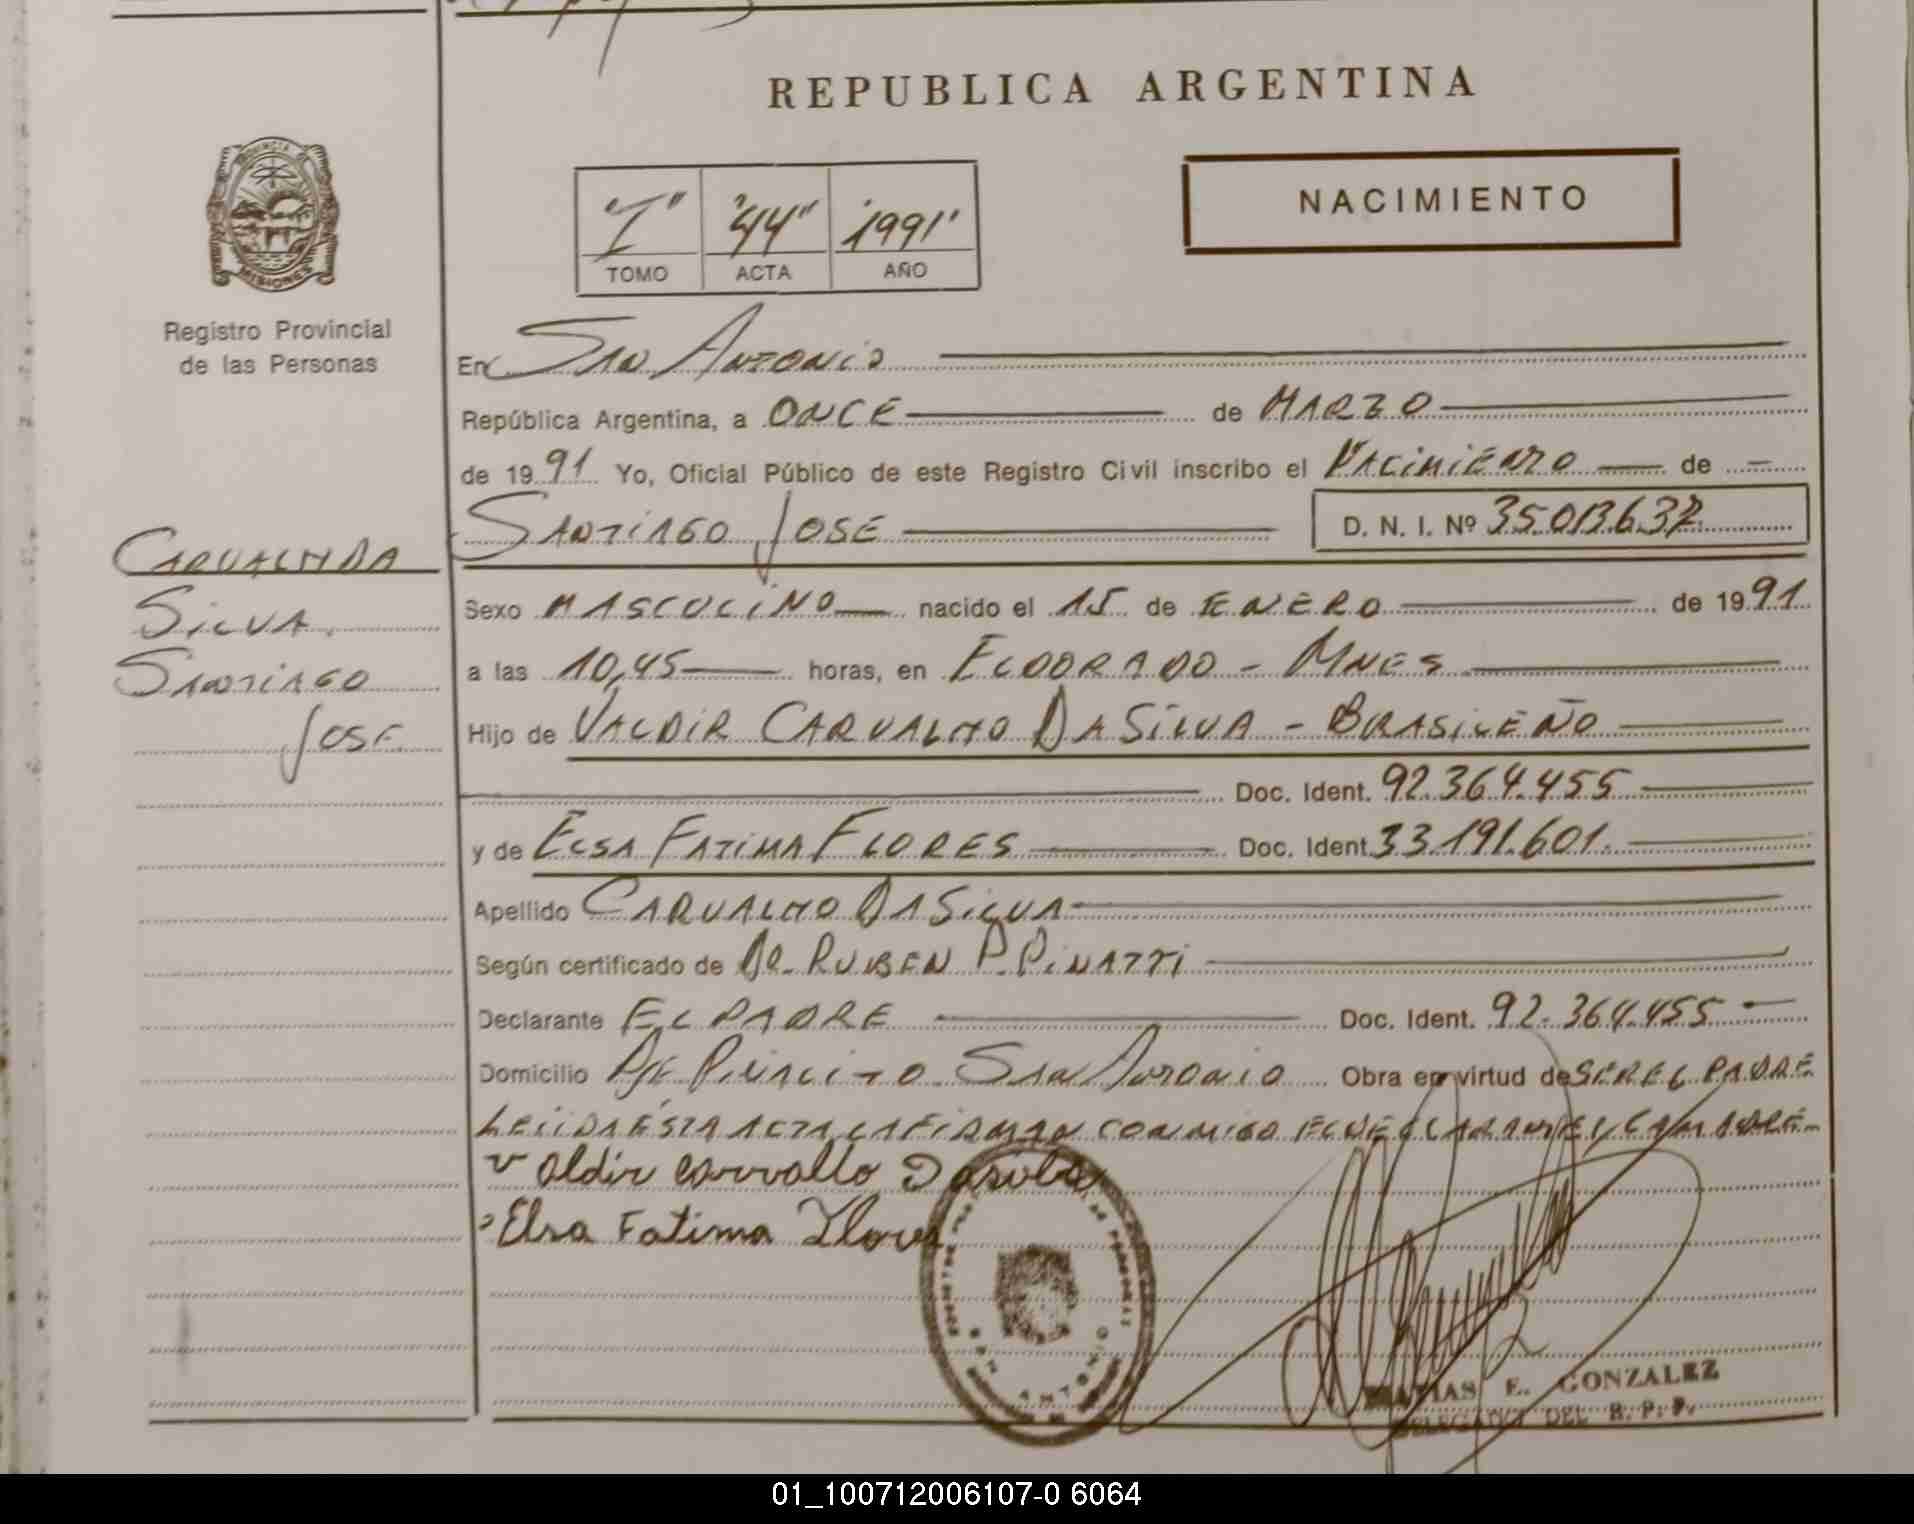 REPUBLICA ARGENTINA
PROVINCIA DE
MISIONES
Registro Provincial
de las Personas
"I" "44" "1991"
TOMO ACTA AÑO
NACIMIENTO
En SAN ANTONIO
República Argentina, a ONCE de MARZO
de 1991 Yo, Oficial Público de este Registro Civil inscribo el NACIMIENTO de
SANTIAGO JOSE D. N. I. Nº 35.013.632
CARVALHO DA
SILVA
SANTIAGO
JOSE
Sexo MASCULINO nacido el 15 de ENERO de 1991
a las 10,45 horas, en ELDORADO - MNES
Hijo de VALDIR CARVALHO DA SILVA - BRASILEÑO
Doc. Ident. 92.364.455
y de ELSA FATIMA FLORES Doc. Ident. 33.191.601.
Apellido CARVALHO DA SILVA
Según certificado de DR. RUBEN P. PINATTI
Declarante EL PADRE Doc. Ident. 92.364.455
Domicilio PJE PIÑALITO SAN ANTONIO Obra en virtud de SER EL PADRE
LEIDA ÉSTA ACTA, LA FIRMAN CONMIGO EL DECLARANTE Y LA MADRE.
Valdir Carvallo Dasilva
Elsa Fatima Flores
SAN ANTONIO
MATIAS E. GONZALEZ
DELEGADO DEL R. P. P.
01_100712006107-0 6064